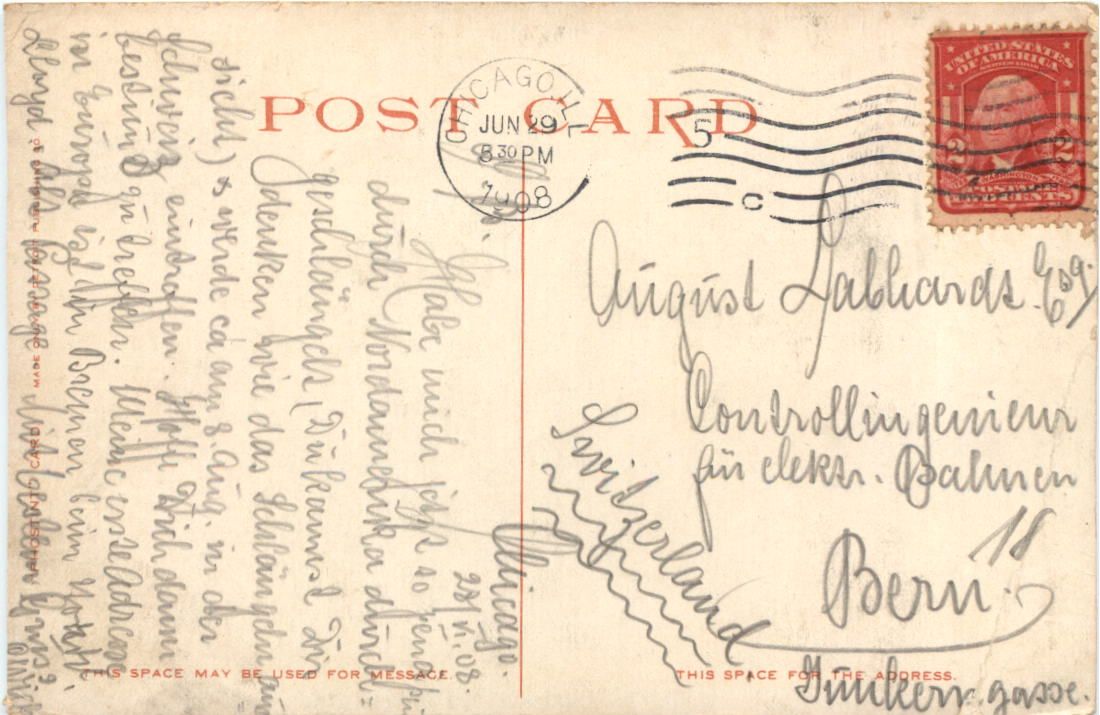 POST CARD
CHICAGO, ILL.
JUN 29
8 30 PM
1908
5
C
UNITED STATES
OF AMERICA
2 2
WASHINGTON
TWO CENTS
August Labhardt. Esq.
Controllingenieur
für elektr. Bahnen
Bern.
Switzerland
Junkern gasse.
THIS SPACE MAY BE USED FOR MESSAGE.
THIS SPACE FOR THE ADDRESS.
PHOSTINT CARD
MADE ONLY BY DETROIT PUBLISHING CO
Chicago.
28/VI.08.
Habe mich jetzt so
durch Nordamerika durch=
geschlängelt, Du kannst Dir
denken wie das Schlängeln
sieht) & werde ca am 8. Aug. in der
Schweiz eintreffen. Hoffe Dich dann
bestimmt zu treffen. Meine
in Europa ist in Bremen beim Nordd.
Lloyd